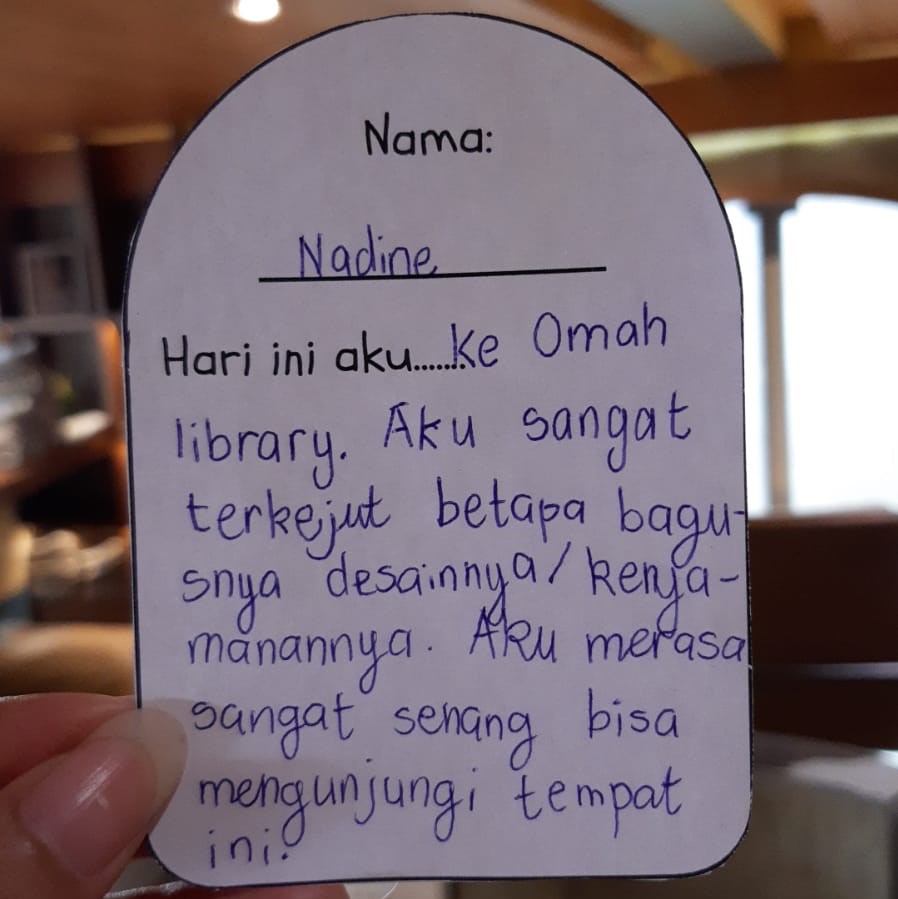 Nama:
Nadine
Hari ini aku.......Ke Omah
library. Aku sangat
terkejut betapa bagu-
snya desainnya/kenya-
manannya. Aku merasa
sangat senang bisa
mengunjungi tempat
ini.